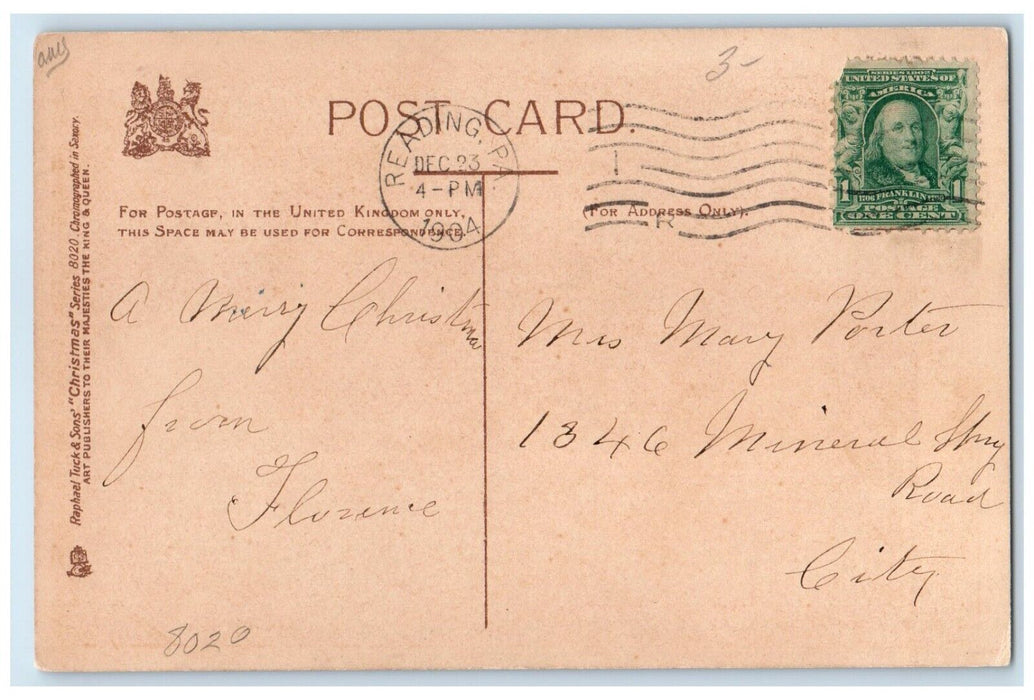 3-
POST CARD.
READING, PA.
DEC 23
4-PM
1904
SERIES 1902
UNITED STATES OF
AMERICA
1 FRANKLIN 1
1706 1790
POSTAGE
ONE CENT
FOR POSTAGE, IN THE UNITED KINGDOM ONLY,
THIS SPACE MAY BE USED FOR CORRESPONDENCE.
(FOR ADDRESS ONLY).
R
Raphael Tuck & Sons' "Christmas" Series 8020. Chromographed in Saxony.
ART PUBLISHERS TO THEIR MAJESTIES THE KING & QUEEN.
A Merry Christma
from
Florence
Mrs Mary Porter
1346 Mineral Spg
Road
City
8020